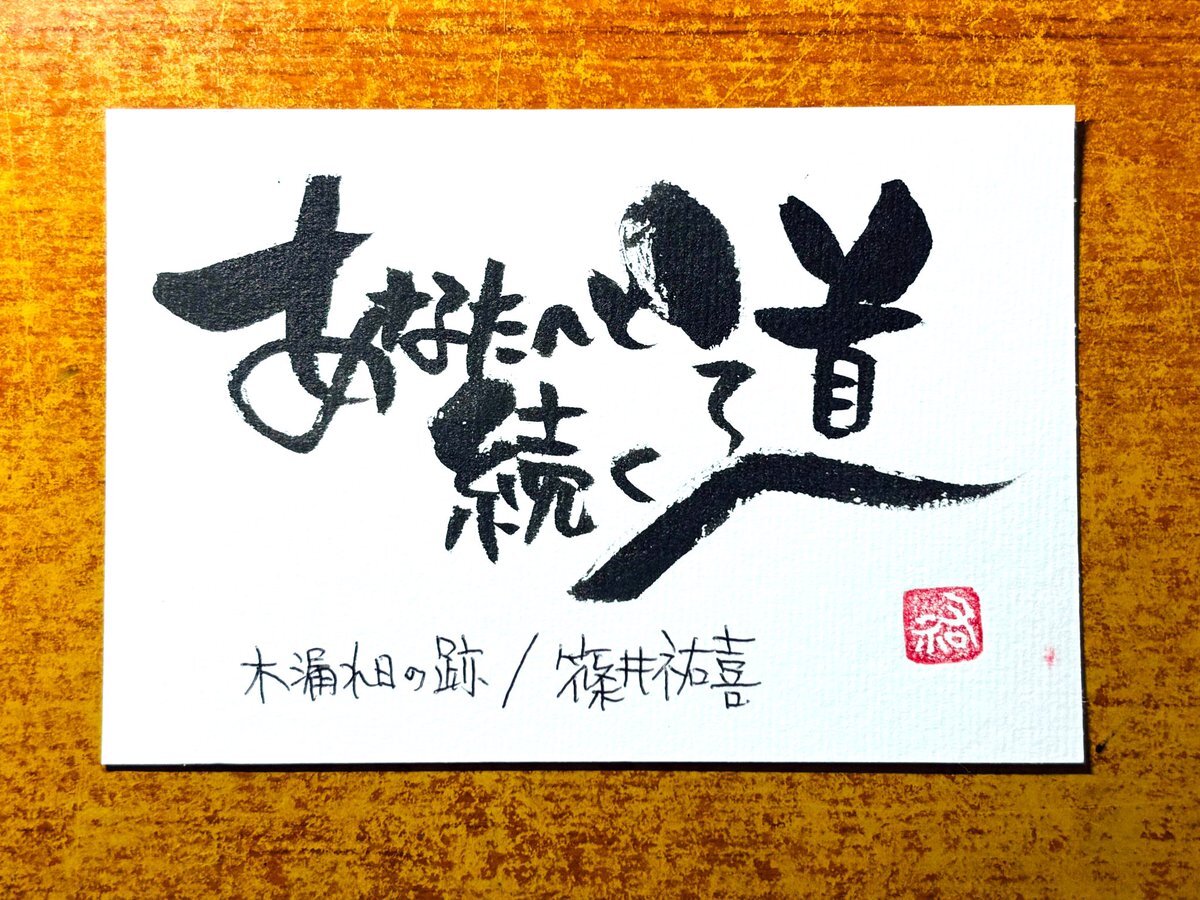 あなたへと
続く
道
木漏れ日の跡/篠井祐喜
祐